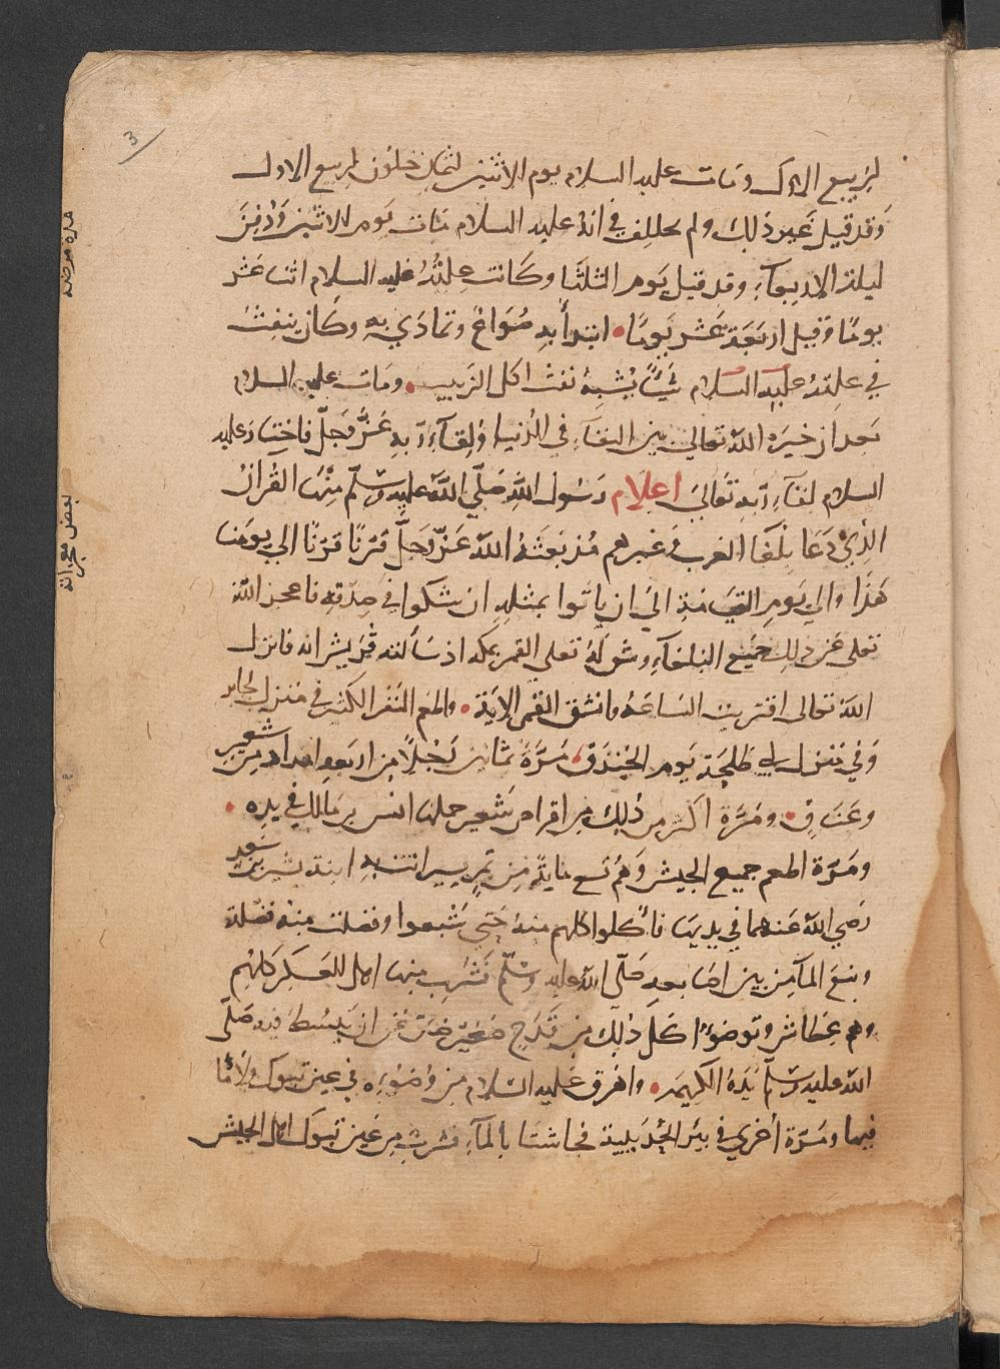 3
لربيع الاول ومات عليه السلام يوم الاثنين لثمان خلون لربيع الاول
وقد قيل غير ذلك ولم يختلف في انه عليه السلام مات يوم الاثنين ودفن
ليلة الاربعآء وقد قيل يوم الثلثا وكانت علته عليه السلام اثنا عشر
يومًا وقيل اربعة عشر يومًا • ابتدأ به صُداع وتمادي به وكان ينفث
في علته عليه السلام شيًا يشبه نفث اكل الزبيب • ومات عليه السلام
بعد ان خيره الله تعالي بين البقآء في الدنيا ولقآء ربه عزّ وجلّ فاختار عليه
السلام لقآء ربه تعالي اعلام رسول الله صلّي الله عليه وسلّم منها القران
الذي دعا بلغا العرب وغيرهم مذ بعثه الله عزّ وجلّ قرنًا قرنًا الي يومنا
هذا والي يوم القيامة الي ان ياتوا بمثله ان شكوا في صدقه فاعجز الله
تعلى عن ذلك جميع البلغآء وشق له تعلى القمر بمكه اذ سألته قريش اية فانزل
الله تعالى اقتربت الساعة وانشق القمر الاية • واطعم النفر الكثير في منزل جابر
وفي منزل ابي طلحة يوم الخندق • مرّة ثمانين رجلًا من اربعة امداد من شعير
وعناق • ومرّة اكثر من ذلك من اقراص شعير حملها انس بن مالك في يده •
ومرّة اطعم جميع الجيش وهم تسع ماية من تمر يسير اتت به ابنة بشير بن سعد
رضي الله عنهما في يديها فأكلوا كلهم منه حتي شبعوا وفضلت منه فضلة
ونبع المآء من بين اصابعه صلّى الله عليه وسلّم فشرب منها اهل العسكر كلهم
وهم عطاش وتوضؤا كل ذلك من قدح صغير ضاق عن ان يبسط فيه صلّى
الله عليه وسلّم يده الكريمة • واهرق عليه السلام من وضوءه في عين تبوك ولا مآ
فيها ومرّة أخري في بئر الحديبية فجاشتا بالمآء فشرب من عين تبوك اهل الجيش
مدة مرضه
بعض معجزاته